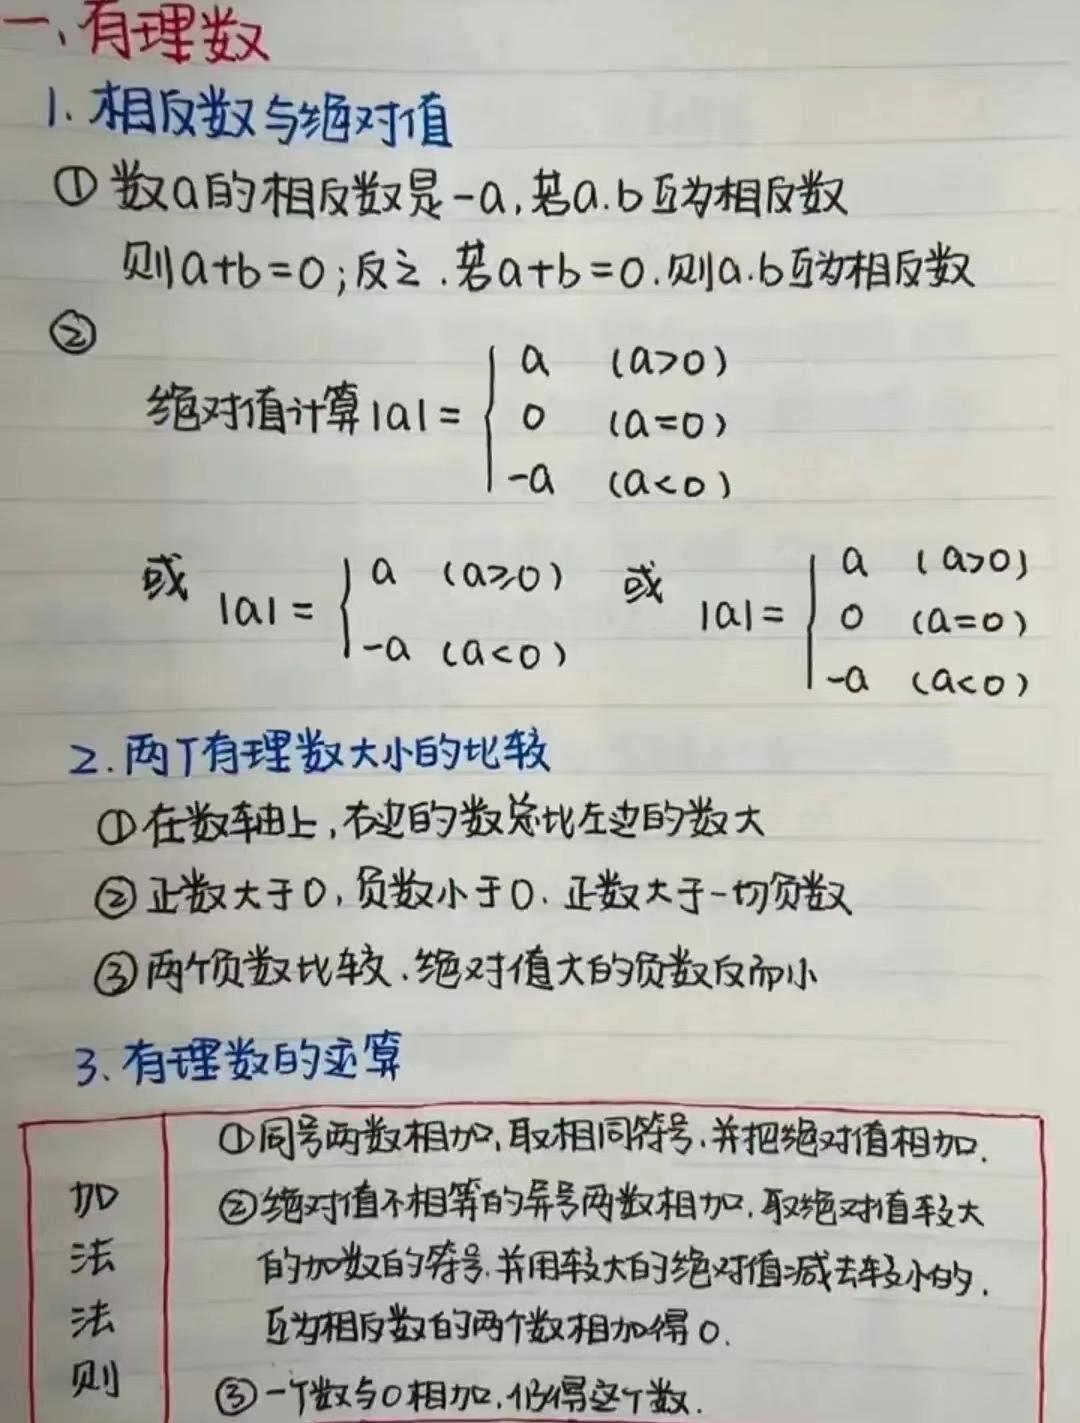 一、有理数
1. 相反数与绝对值
① 数a的相反数是-a,若a.b互为相反数
则a+b=0;反之.若a+b=0.则a.b互为相反数
②
a (a>0)
绝对值计算|a|= { 0 (a=0)
-a (a<0)
或 |a|= { a (a≥0)
-a (a<0)
或 |a|= { a (a>0)
0 (a=0)
-a (a<0)
2.两个有理数大小的比较
①在数轴上,右边的数总比左边的数大
②正数大于0,负数小于0.正数大于一切负数
③两个负数比较.绝对值大的负数反而小
3、有理数的运算
加法法则
①同号两数相加,取相同符号,并把绝对值相加.
②绝对值不相等的异号两数相加,取绝对值较大
的加数的符号.并用较大的绝对值减去较小的.
互为相反数的两个数相加得0.
③一个数与0相加,仍得这个数.